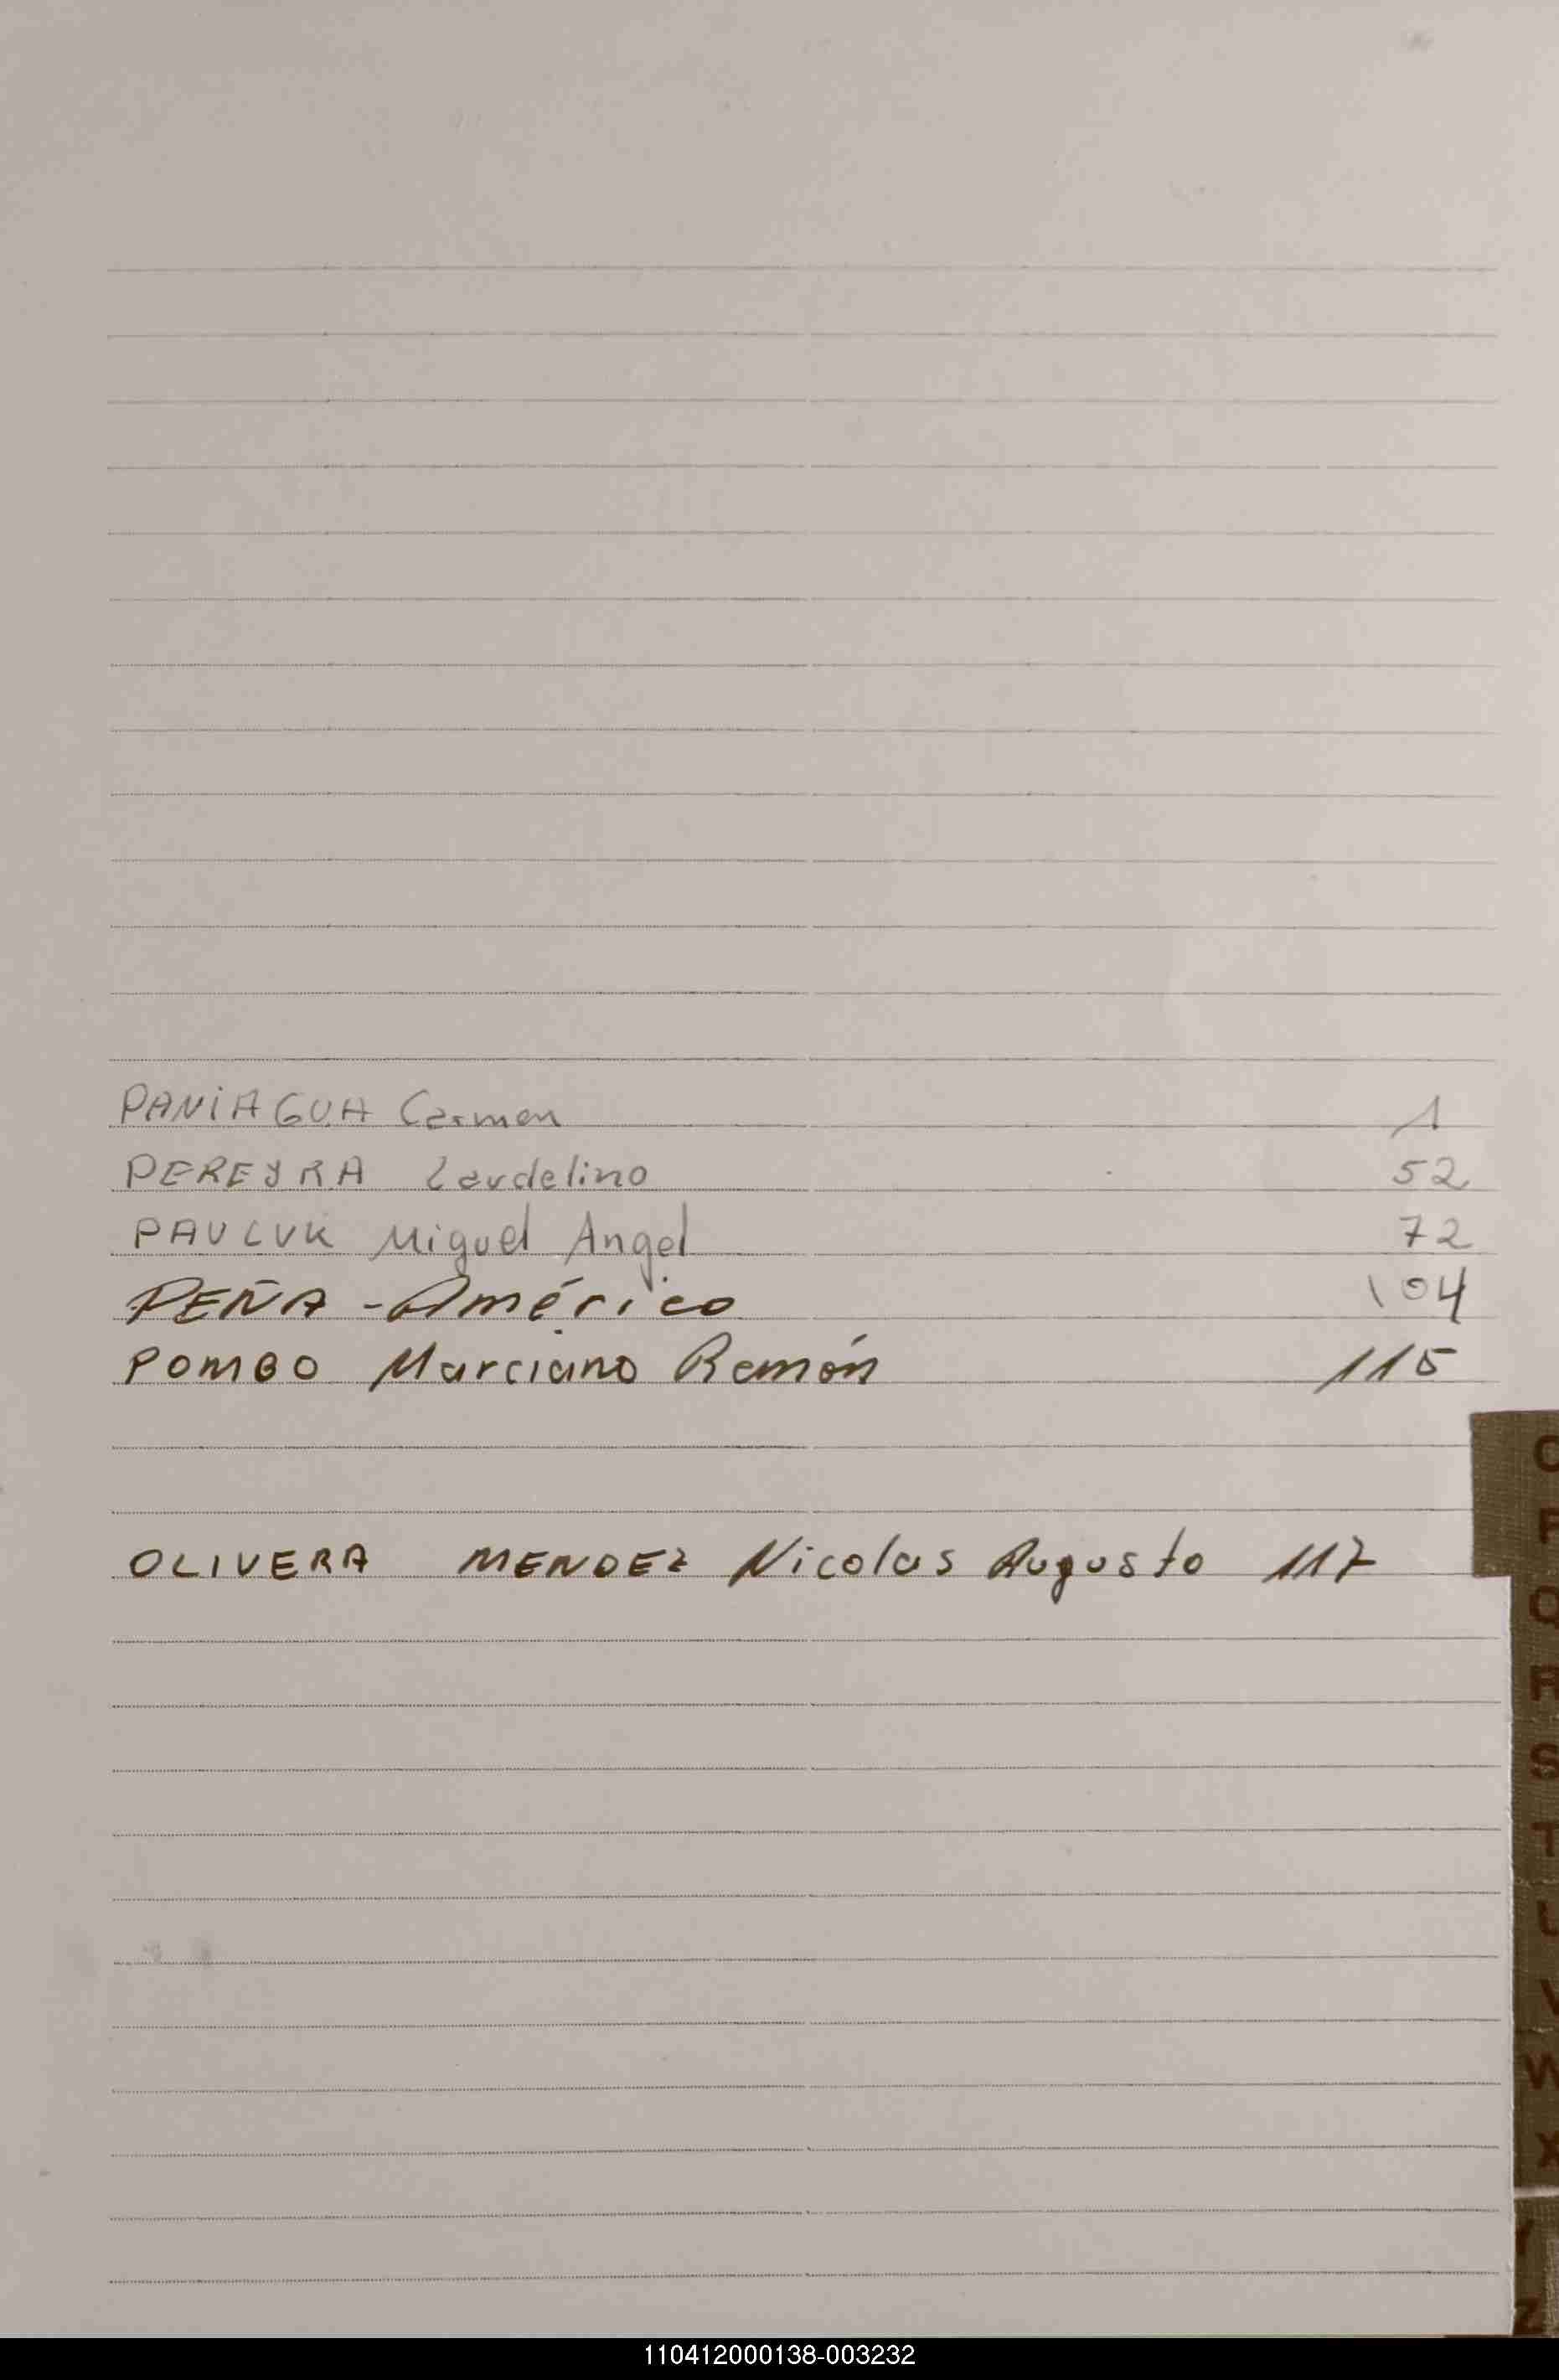 PANIAGUA Carmen 1
PEREYRA Laudelino 52
PAULUK Miguel Angel 72
PEÑA - Américo 104
POMBO Marciano Ramón 115
OLIVERA MENDEZ Nicolas Augusto 117
O
P
Q
R
S
T
U
V
W
X
Y
Z
110412000138-003232